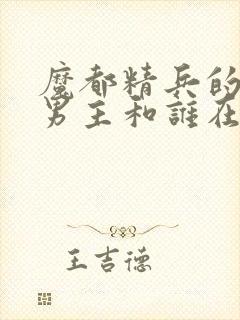 魔都精兵的
男主和誰在
王吉德